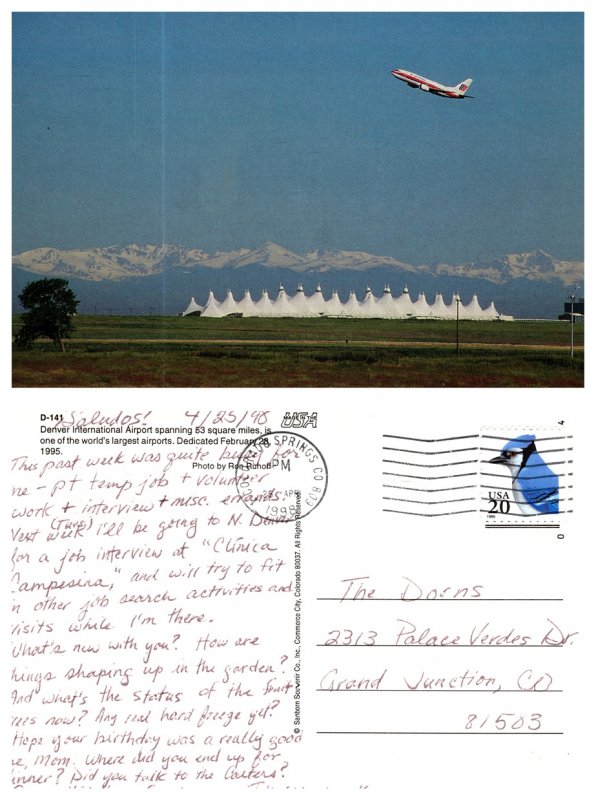 D-141
Saludos! 4/25/98
MADE IN THE
USA
Denver International Airport spanning 53 square miles, is
one of the world's largest airports. Dedicated February 28,
1995.
Photo by Ron Ruhoff
This past week was quite busy for
me - pt temp job + volunteer
work + interview + misc. errands.
Next week (Tues) I'll be going to N. Denver
for a job interview at "Clínica
Campesina," and will try to fit
in other job search activities and
visits while I'm there.
What's new with you? How are
things shaping up in the garden?
And what's the status of the fruit
trees now? Any real hard freeze yet?
Hope your birthday was a really good
one, Mom. Where did you end up for
dinner? Did you talk to the Carters?
© Sanborn Souvenir Co., Inc., Commerce City, Colorado 80037. All Rights Reserved.
COLORADO SPRINGS CO 809
PM
APR
1998
USA
20
1995
4
0
The Dorns
2313 Palace Verdes Dr.
Grand Junction, CO
81503